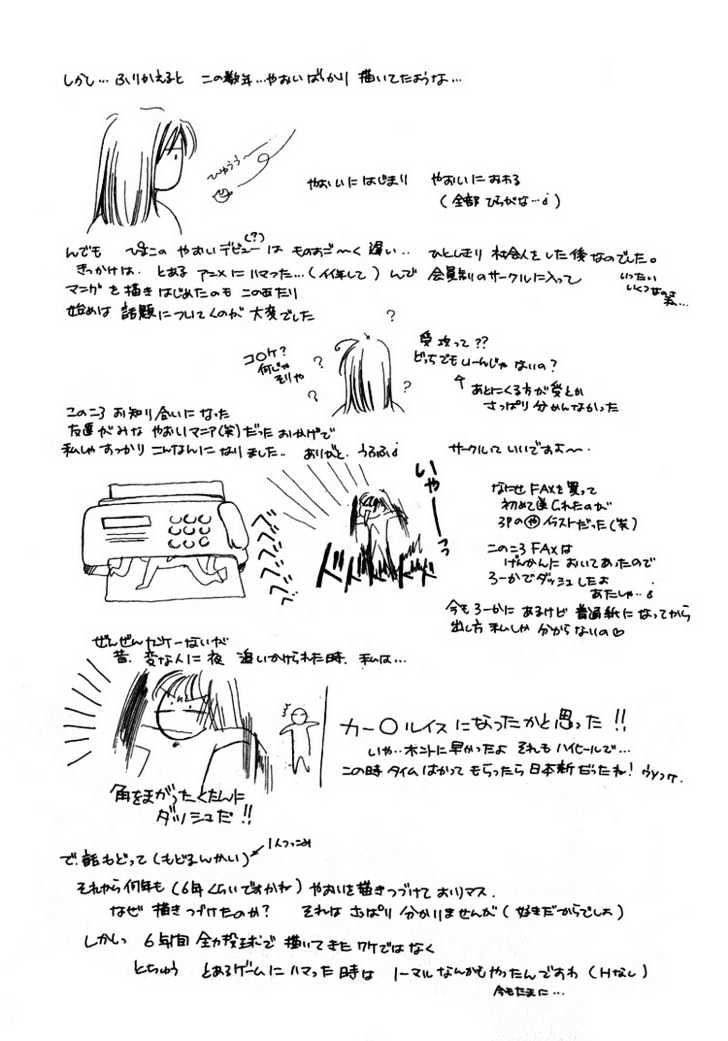 しかし… ふりかえると この数年…やおいばっかり 描いてたような…
ひゅうう〜
やおいにはじまり やおいにおわる
(全部 ひらがな…i)
んでも ぴよこの やおいデビュー(?)は ものすご〜く 遅い.. ひとしきり 社会人をした後なのでした。
きっかけは. とある アニメに ハマった…(イイ年して) んで 会員制のサークルに入って
いったい
いくつなのさ
私…
マンガ を 描き はじめたのも このあたり
始めは 話題についてくのが 大変でした
?
?
?
?
?
コ〇ケ?
何じゃ
そりゃ
受 攻って??
どっちでもいーんじゃ ないの?
↑ あとにくる方が受とか
さっぱり 分かんなかった
このころ お知り合いになった
友達がみな やおいマニア(笑)だった おかげで
私しゃすっかり こんなんに なりました.. ありがと. うるふi
サークルって いいですよ〜.
いやーっ
ドドドドドド
なにせ FAXを買って
初めて送られたのが
3Pの㋳イラストだった(笑)
このころ FAXは
げんかんに おいてあったので
ろーかでダッシュしたよ
あたしゃ..i
今も ろーかに あるけど 普通紙に なってから
出し方 私しか 分からないの♡
ぜんぜんカンケーないが
昔. 変な人に 夜 追いかけられた時. 私は…
カー〇ルイスになったかと思った!!
いや‥ホントに早かったよ それも ハイヒールで…
この時 タイム はかって もらったら 日本新だったね!
角をまがったとたんに
ダッシュだ!!
で. 話もどって(もどるんかい) ← 1人つっこみ
それから 何年も (6年くらいですかね) やおいを描きつづけて おりマス.
なぜ 描きつづけたのか? それは さっぱり 分かりませんが (好きだからでしょ)
しかしっ 6年間 全力投球で 描いてきた ワケではなく
とちゅう とあるゲームに ハマった時は ノーマル なんかも やったんですわ (Hなし)
今もたまに…